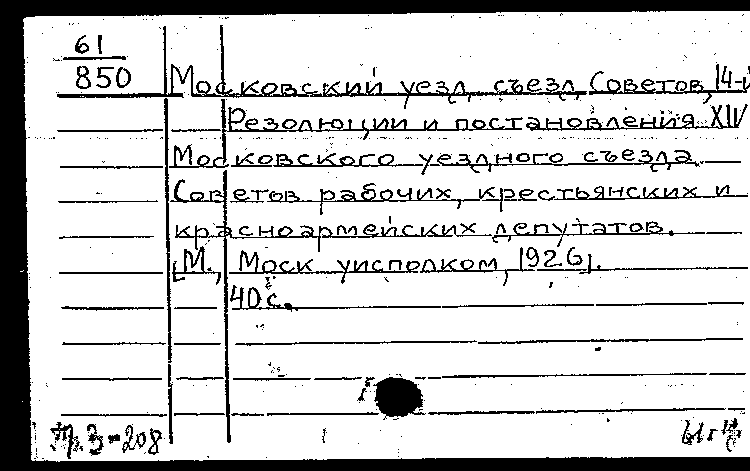 61
850
Московский уезд. съезд Советов, 14-й
Резолюции и постановления XIV
Московского уездного съезда
Советов рабочих, крестьянских и
красноармейских депутатов.
[М., Моск уисполком, 1926].
40 с.
Пр. 3-208